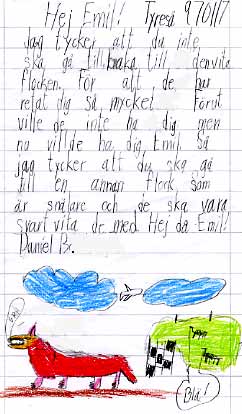 Hej Emil! Tyresö 970117
Jag tycker att du inte
ska gå tillbaka till den vita
flocken. För att de har
retat dig så mycket. Förut
ville de inte ha dig men
nu vill de ha dig Emil. Så
jag tycker att du ska gå
till en annan flock som
är snälare och de ska vara
svart vita de med Hej då Emil!
Daniel B.
Blä!